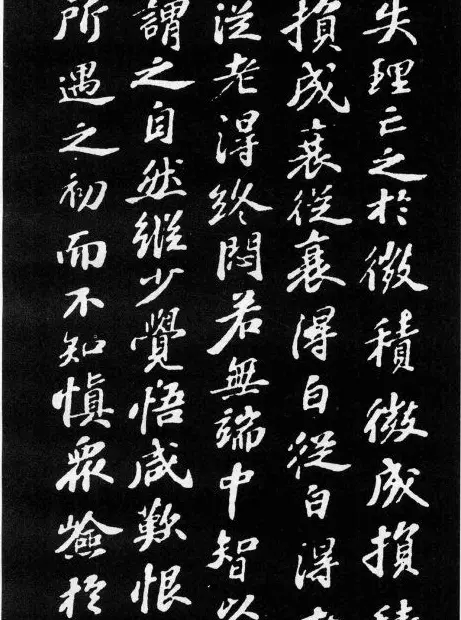 失理亡之於微積微成損積
損成衰從衰得白從白得老
從老得終悶若無端中智以
謂之自然縱少覺悟咸歎恨
所遇之初而不知慎眾險於